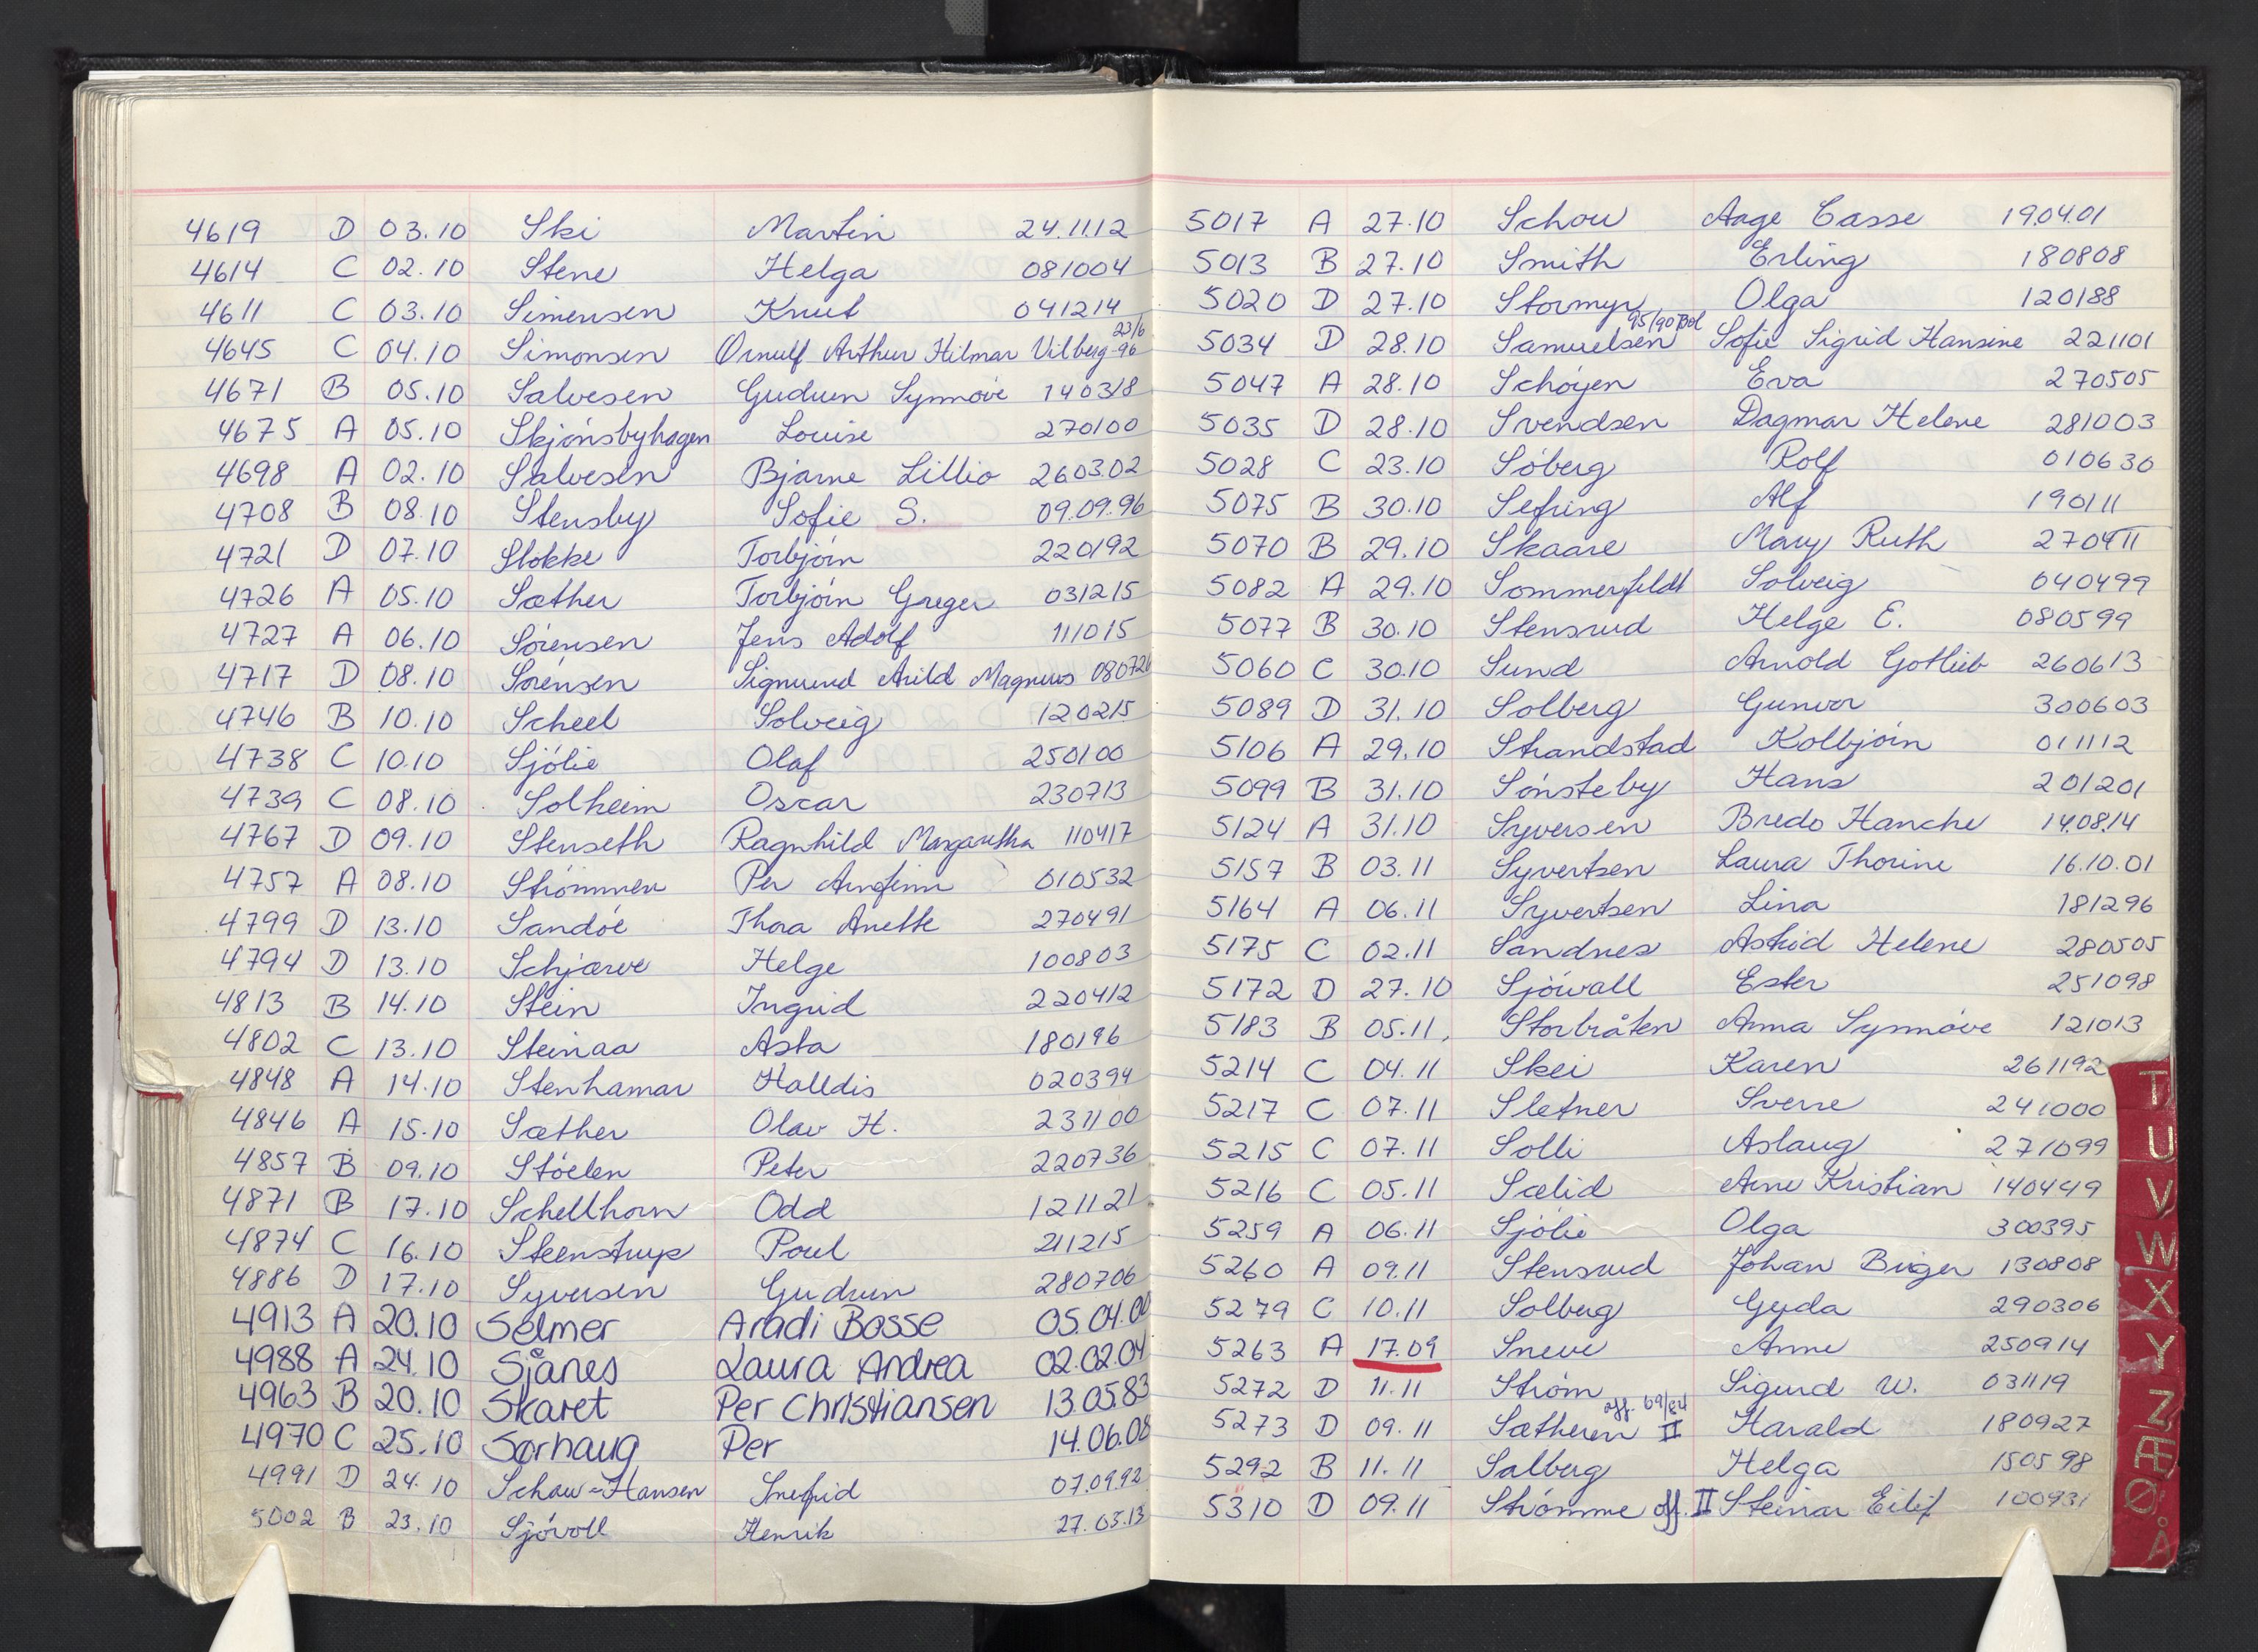 4619 D 03.10 Ski Martin 24.11.12
4614 C 02.10 Stene Helga 081004
4611 C 03.10 Simensen Knut 041214
4645 C 04.10 Simonsen Ornulf Arthur Hilmar Vilberg 23/6-96
4671 B 05.10 Salvesen Gudrun Synnøve 140318
4675 A 05.10 Skjønsbyhagen Louise 270100
4698 A 02.10 Salvesen Bjarne Lillio 260302
4708 B 08.10 Stensby Sofie S. 09.09.96
4721 D 07.10 Stokke Torbjørn 220192
4726 A 05.10 Sæther Torbjørn Greger 031215
4727 A 06.10 Sørensen Jens Adolf 111015
4717 D 08.10 Sørensen Sigmund Arild Magnus 080726
4746 B 10.10 Scheel Solveig 120215
4738 C 10.10 Sjølie Olaf 250100
4739 C 08.10 Solheim Oscar 230713
4767 D 09.10 Stenseth Ragnhild Margaretha 110417
4757 A 08.10 Strømmen Per Arnfinn 010532
4799 D 13.10 Sandøe Thora Anette 270491
4794 D 13.10 Schjærve Helge 100803
4813 B 14.10 Stein Ingrid 220412
4802 C 13.10 Steinaa Asta 180196
4848 A 14.10 Stenhamar Halldis 020394
4846 A 15.10 Sæther Olav H. 231100
4857 B 09.10 Støelen Peter 220736
4871 B 17.10 Schellhorn Odd 121121
4874 C 16.10 Steenstrup Poul 211215
4886 D 17.10 Syversen Gudrun 280706
4913 A 20.10 Selmer Aradi Bosse 05.04.00
4988 A 24.10 Sjånes Laura Andrea 02.02.04
4963 B 20.10 Skaret Per Christiansen 13.05.83
4970 C 25.10 Sørhaug Per 14.06.08
4991 D 24.10 Schau-Hansen Snefrid 07.09.92
5002 B 23.10 Sjøvoll Henrik 27.03.13
5017 A 27.10 Schou Aage Casse 19.04.01
5013 B 27.10 Smith Erling 180808
5020 D 27.10 Stormyr Olga 120188
5034 D 28.10 Samuelsen 95/90 Bol Sofie Sigrid Hansine 221101
5047 A 28.10 Schøyen Eva 270505
5035 D 28.10 Svendsen Dagmar Helene 281003
5028 C 23.10 Søberg Rolf 010630
5075 B 30.10 Sefring Alf 190111
5070 B 29.10 Skaare Mary Ruth 270411
5082 A 29.10 Sommerfeldt Solveig 040499
5077 B 30.10 Stensrud Helge E. 080599
5060 C 30.10 Sund Arnold Gotlieb 260613
5089 D 31.10 Solberg Gunvor 300603
5106 A 29.10 Strandstad Kolbjørn 011112
5099 B 31.10 Sønsteby Hans 201201
5124 A 31.10 Syversen Bredo Hanche 14.08.14
5157 B 03.11 Syvertsen Laura Thorine 16.10.01
5164 A 06.11 Syvertsen Lina 181296
5175 C 02.11 Sandnes Astrid Helene 280505
5172 D 27.10 Sjøwall Ester 251098
5183 B 05.11. Storbråten Anna Synnøve 121013
5214 C 04.11 Skei Karen 261192
5217 C 07.11 Sletner Sverre 241000
5215 C 07.11 Solli Aslaug 271099
5216 C 05.11 Sælid Arne Kristian 140449
5259 A 06.11 Sjølie Olga 300395
5260 A 09.11 Stensrud Johan Birger 130808
5279 C 10.11 Solberg Gyda 290306
5263 A 17.09 Sneve Anne 250914
5272 D 11.11 Strøm Sigurd W. 031119
5273 D 09.11 Sætheren off. 69/84 II Harald 180927
5292 B 11.11 Salberg Helga 150598
5310 D 09.11 Strømme off. II Steinar Eilif 100931
T
U
V
W
X
Y
Z
Æ
Ø
Å